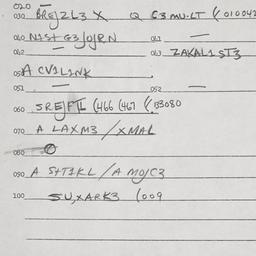 020
030 BREJZL3 X Q G3 MU·LT (010042
040 N1ST G3/O/RN 041 —
042 — 043 ZAKAL1ST3
050 A CV1L1NK
051 — 052 —
060 SREJFTL (466 (467 (03080
070 A LAXM3 / XMAL
080
090 A S+T1KL / A MOJC3
100 SU,XARK3 (009